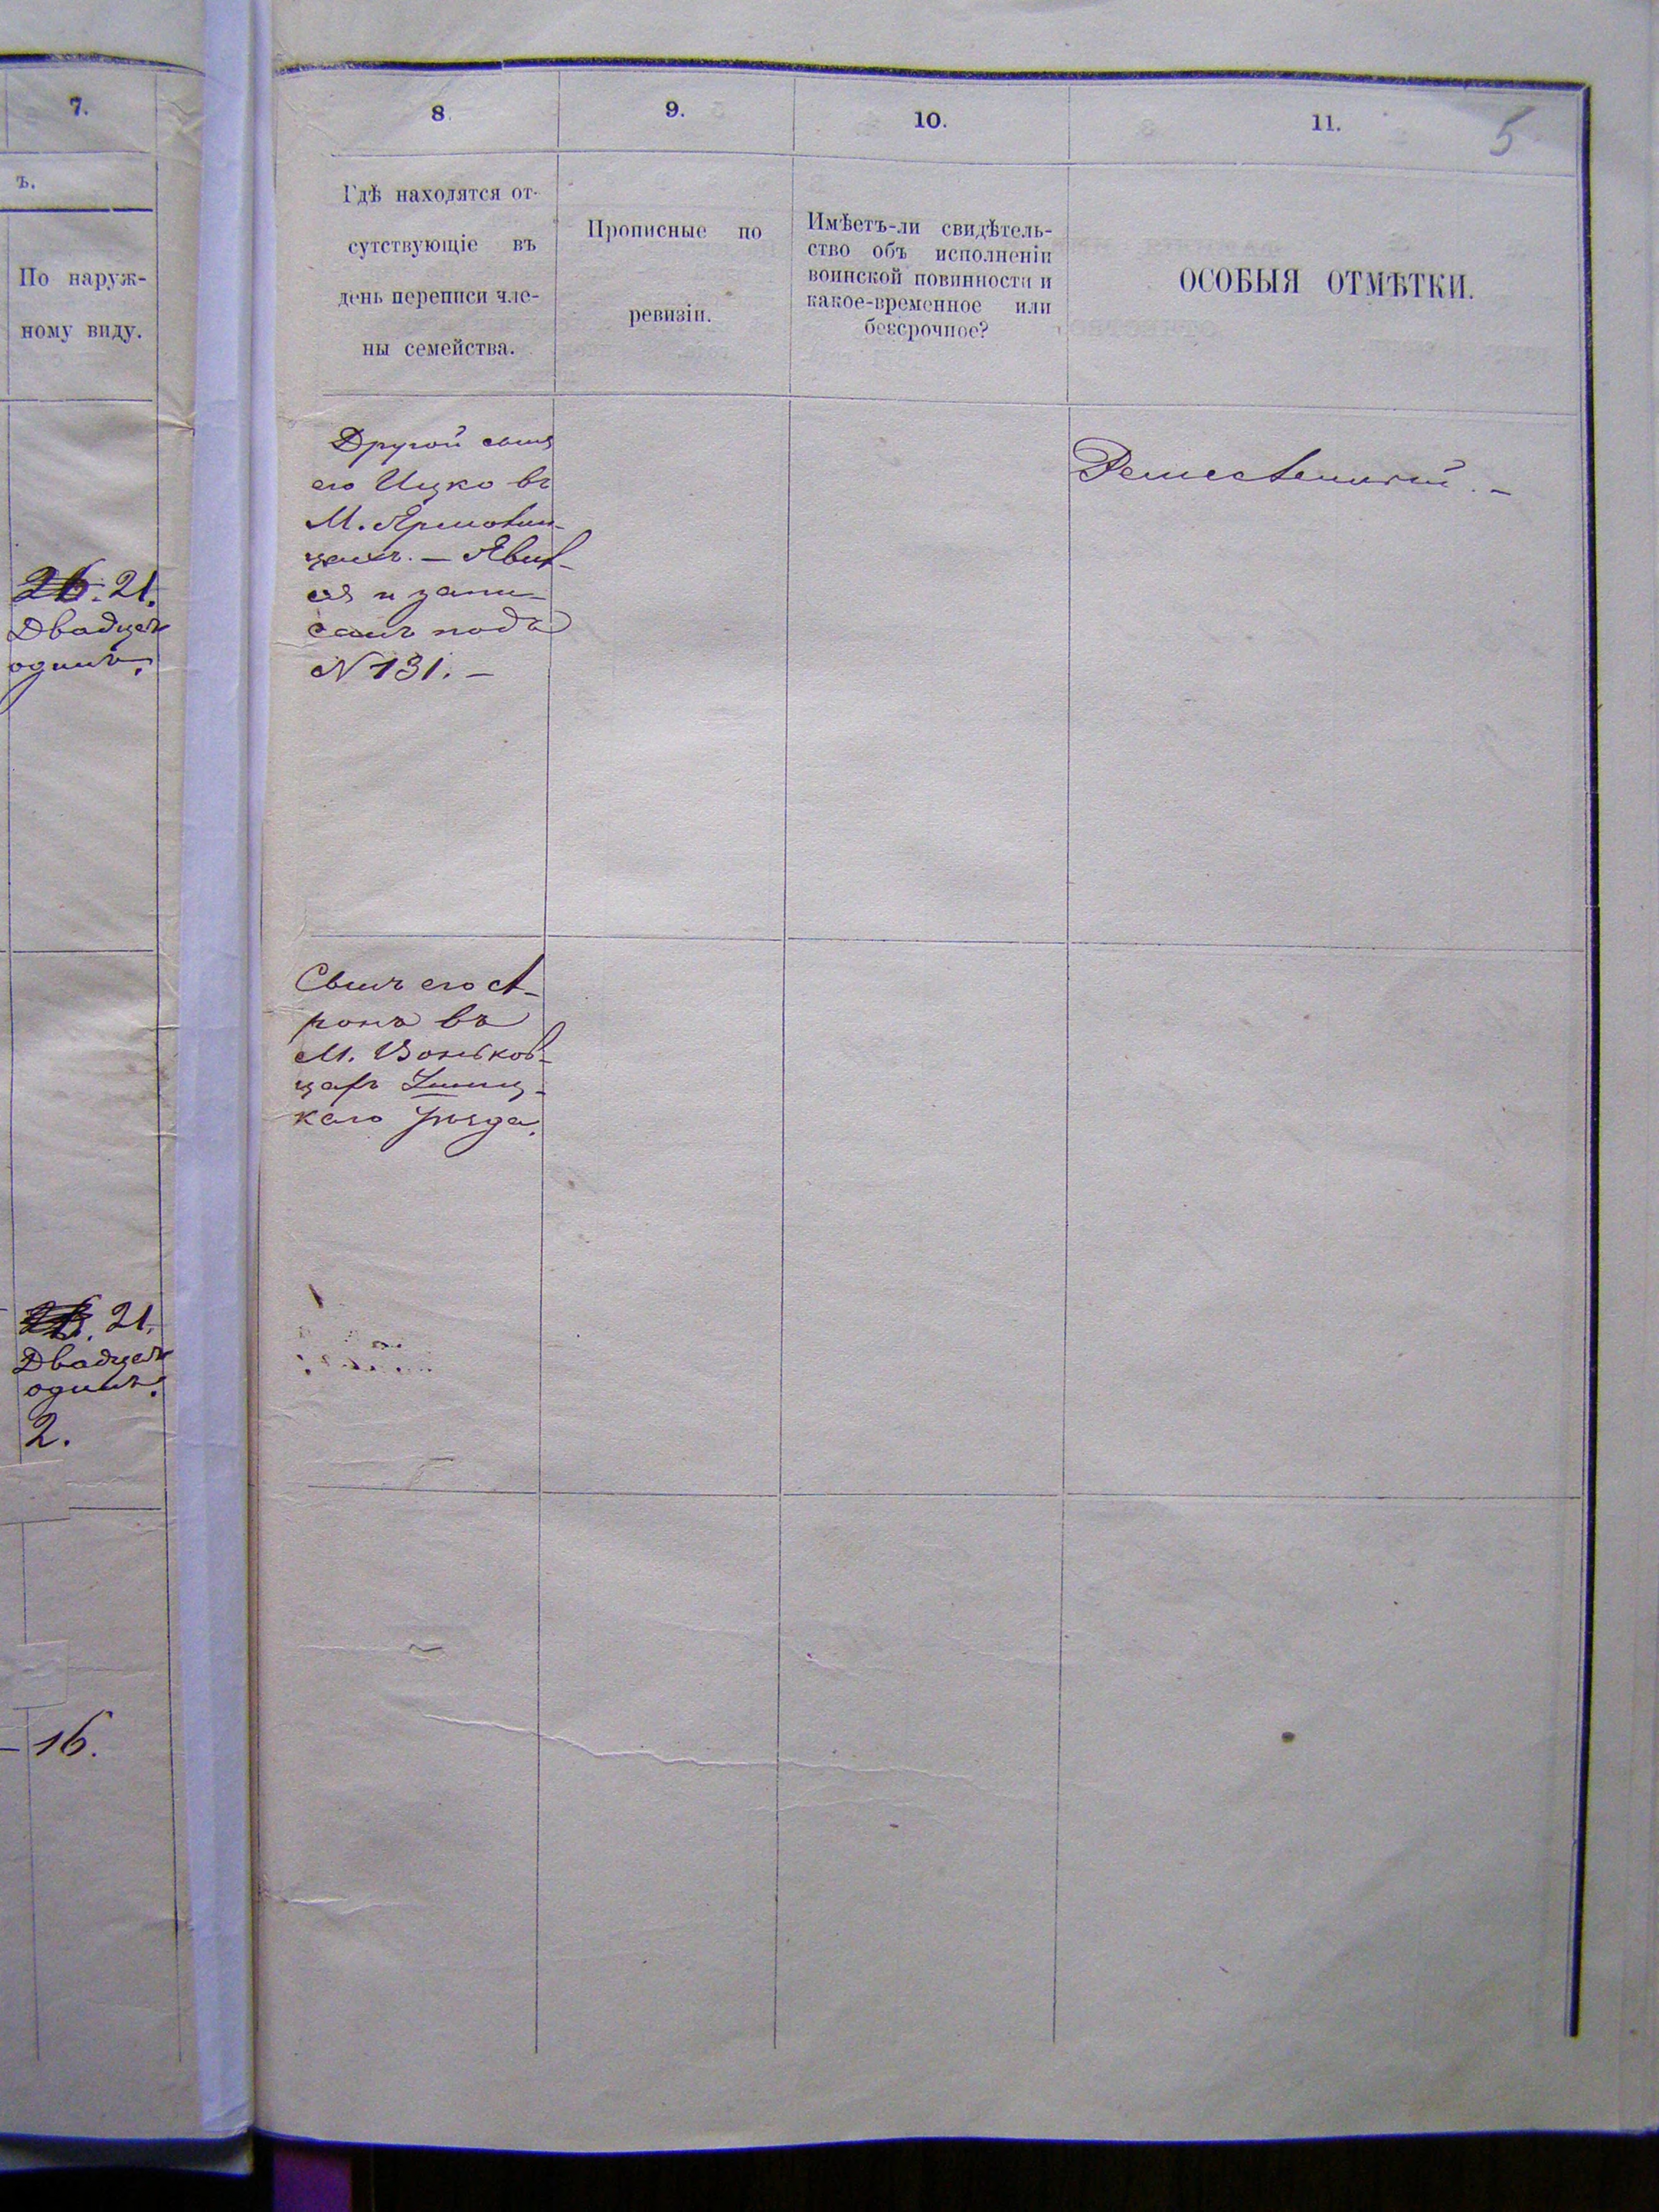 7.
ъ.
По наруж-
ному виду.
21.
Двадцать
одинъ.
21.
Двадцать
одинъ.
2.
16.
8.
9.
10.
11.
5
Гдѣ находятся от-
сутствующіе въ
день переписи чле-
ны семейства.
Прописные по
ревизіи.
Имѣетъ-ли свидѣтель-
ство объ исполненіи
воинской повинности и
какое-временное или
безсрочное?
ОСОБЫЯ ОТМѢТКИ.
Другой сынъ
его Ицко въ
М. Ярмолин-
цахъ. — Явил-
ся и запи-
санъ подъ
N 131. —
Сынъ его А-
ронъ въ
М. Воньков-
цахъ Ушиц-
каго уѣзда.